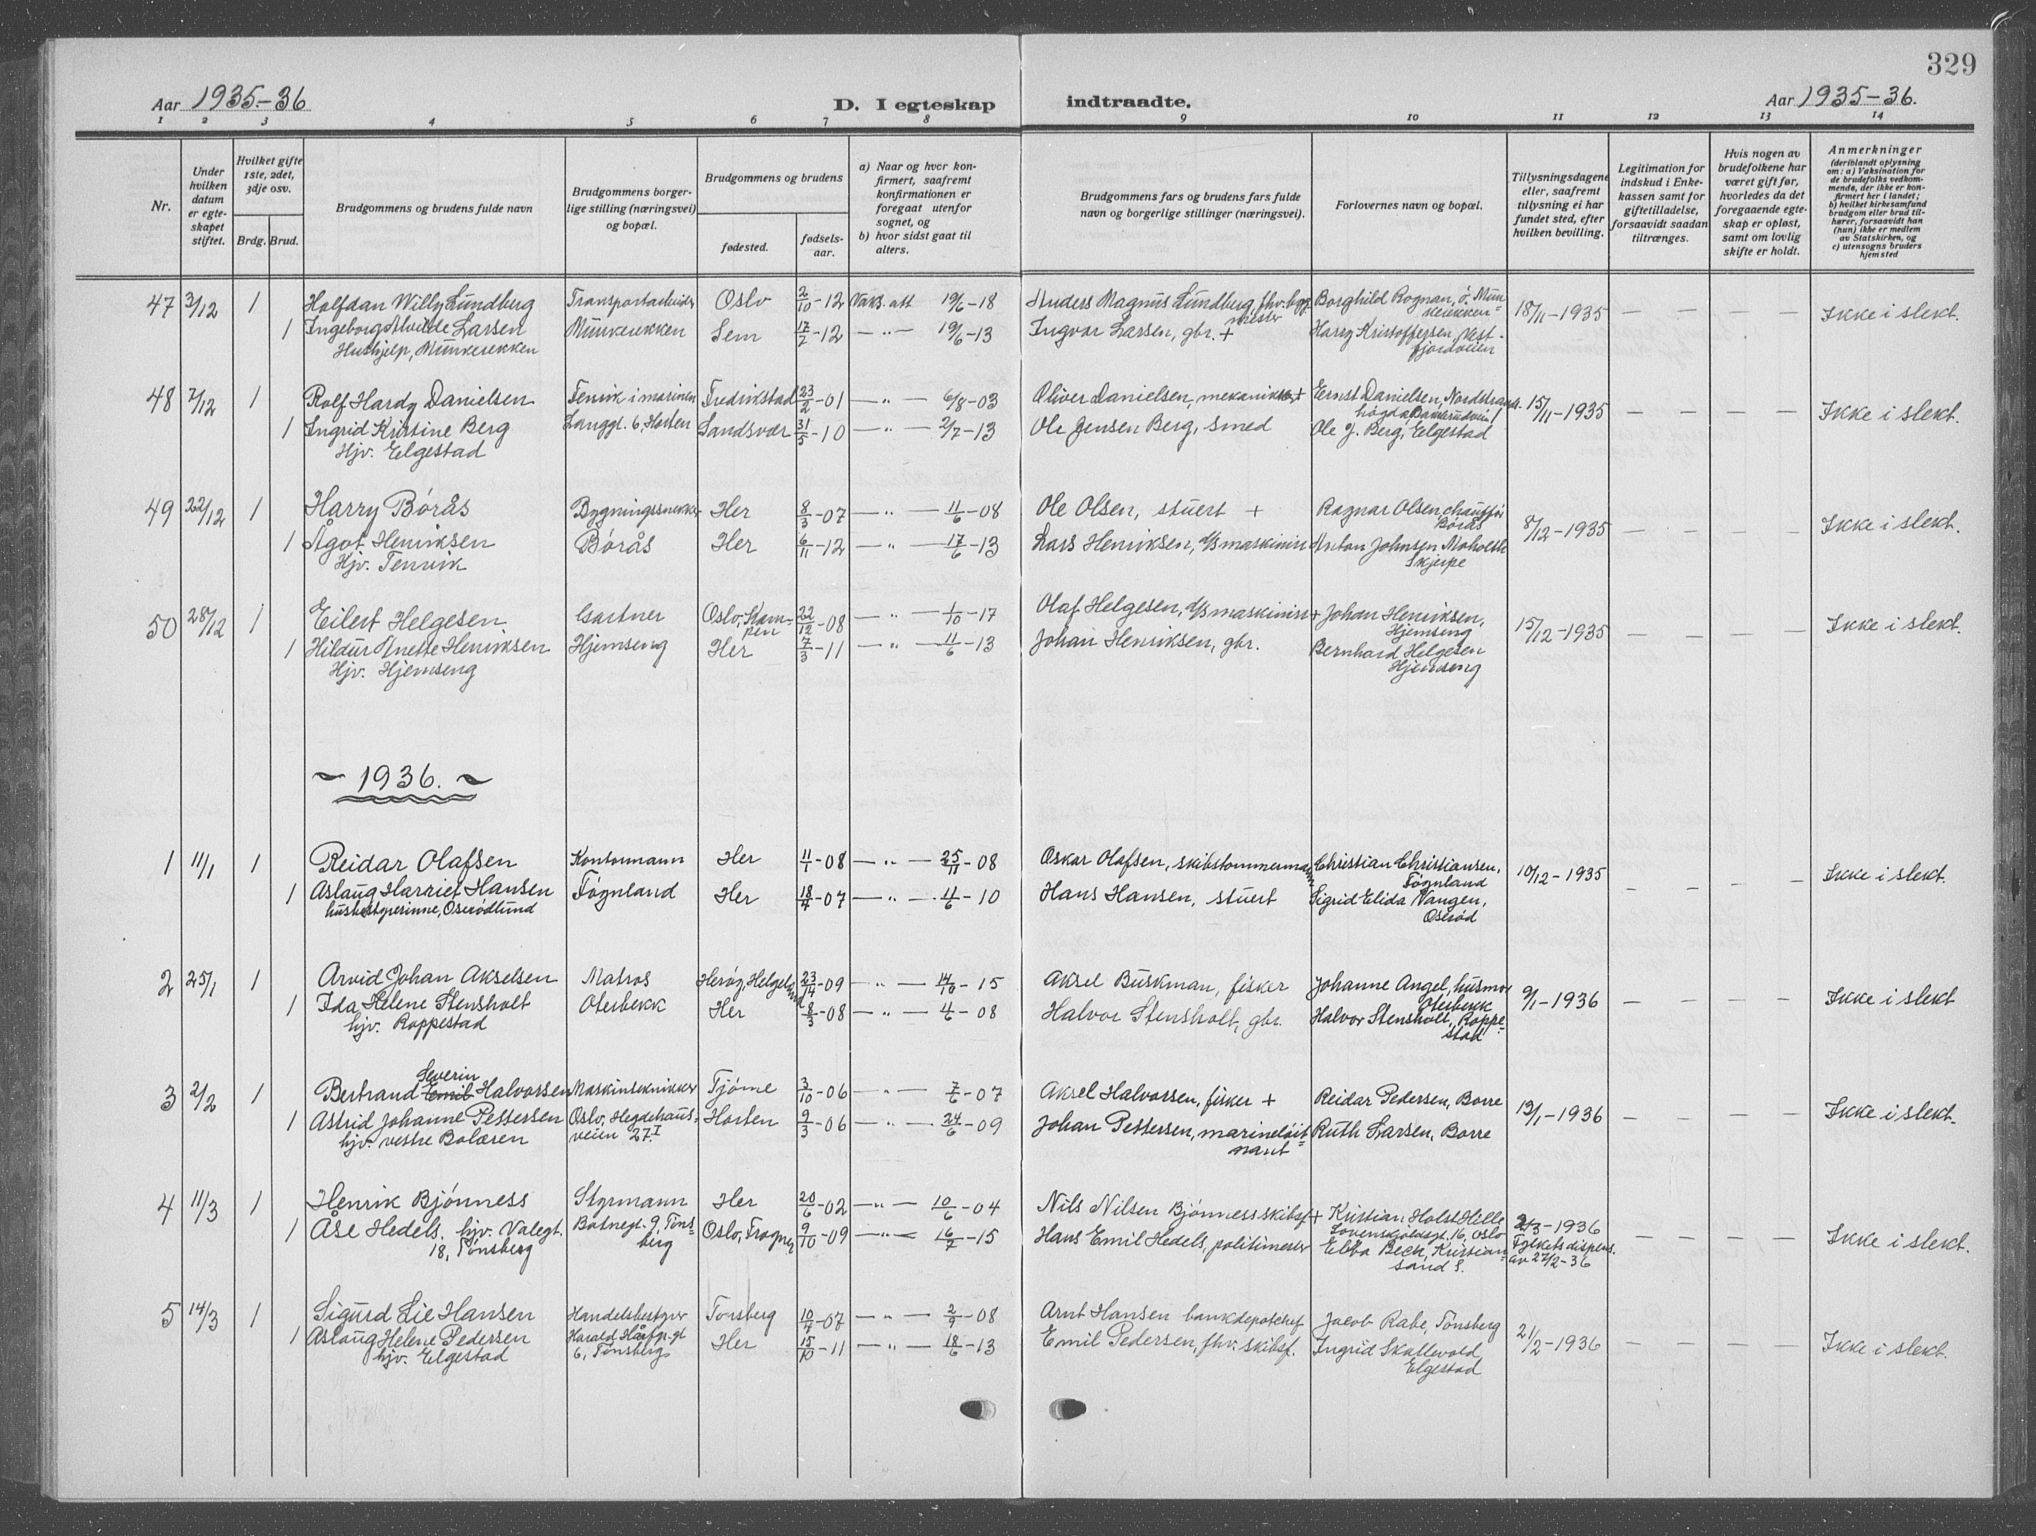 329
Aar 1935-36
D. I egteskap indtraadte.
Aar 1935-36.
1 2 3 4 5 6 7 8 9 10 11 12 13 14
Nr.
Under hvilken datum er egteskapet stiftet.
Hvilket gifte 1ste, 2det, 3dje osv.
Brdg. Brud.
Brudgommens og brudens fulde navn
Brudgommens borgerlige stilling (næringsvei) og bopæl.
Brudgommens og brudens
fødested.
fødselsaar.
a) Naar og hvor konfirmert, saafremt konfirmationen er foregaat utenfor sognet, og
b) hvor sidst gaat til alters.
Brudgommens fars og brudens fars fulde navn og borgerlige stillinger (næringsvei).
Forlovernes navn og bopæl.
Tillysningsdagene eller, saafremt tillysning ei har fundet sted, efter hvilken bevilling.
Legitimation for indskud i Enkekassen samt for giftetilladelse, forsaavidt saadan tiltrænges.
Hvis nogen av brudefolkene har været gift før, hvorledes da det foregaaende egteskap er opløst, samt om lovlig skifte er holdt.
Anmerkninger
(deriblandt oplysning om: a) Vaksination for de brudefolks vedkommende, der ikke er konfirmert her i landet;
b) hvilket kirkesamfund brudgom eller brud tilhører, forsaavidt han (hun) ikke er medlem av Statskirken, og
c) utensogns bruders hjemsted
47 3/12 1 Halfdan Willy Lundberg Transportarbeider Oslo 2/10-12 Vaks. att 19/6-18 Anders Magnus Lundberg, fhv. bygmester Borghild Rognan, ö. Munkerekken 18/11-1935 — — — Ikke i slekt.
1 Ingeborg Alvilde Larsen Munkerekken Sem 17/7-12 — " — 19/6-13 Ingvar Larsen, gbr. + Harry Kristoffersen, Vestfjordveien
Hushjelp, Munkerekken
48 7/12 1 Rolf Hardy Danielsen Fenrik i marinen Fredrikstad 23/2-01 — " — 6/8-03 Oliver Danielsen, mekaniker + Ernst Danielsen, Nordstrandshögda 15/11-1935 — — — Ikke i slekt.
1 Ingrid Kristine Berg Langgt. 6, Horten Sandsvær 31/5-10 — " — 2/7-13 Ole Jensen Berg, smed Ole J. Berg, Elgestad
Hjv. Elgestad
49 22/12 1 Harry Börås Bygningssnekker Her 8/3-07 — " — 11/6-08 Ole Olsen, stuert + Ragnar Olsen, chaufför Börås 8/12-1935 — — — Ikke i slekt.
1 Ågot Henriksen Börås Her 6/11-12 — " — 17/6-13 Lars Henriksen, d/s maskinist Anton Johnsen Moholth Skjerpe
Hjv. Tenvik
50 28/12 1 Eilert Helgesen Gartner Oslo, Kampen 22/12-08 — " — 1/10-17 Olaf Helgesen, d/s maskinist + Johan Henriksen, Hjemseng 15/12-1935 — — — Ikke i slekt.
1 Hildur Anette Henriksen Hjemseng Her 7/3-11 — " — 11/6-13 Johan Henriksen, gbr. Bernhard Helgesen Hjemseng
Hjv. Hjemseng
~ 1936. ~
1 11/1 1 Reidar Olafsen Kontormann Her 11/1-08 — " — 25/11-08 Oskar Olafsen, skibstømmermann Christian Christiansen, Tögnland 10/12-1935 — — — Ikke i slekt.
1 Aslaug Harriet Hansen Tögnland Her 18/4-07 — " — 4/6-10 Hans Hansen, stuert Sigrid Elida Vangen, Oseröd
husbestyrerinne, Oserödlund
2 25/1 1 Arvid Johan Akselsen Matros Heröy, Helgeland 23/12-09 — " — 14/10-15 Aksel Buskman, fisker Johanne Angel, husmor Oterbekk 9/1-1936 — — — Ikke i slekt
1 Ida Helene Stensholt Oterbekk Her 8/3-08 — " — 4/6-08 Halvor Stensholt, gbr. Halvor Stensholt, Roppestad
hjv. Roppestad
3 2/2 1 Bertrand Severin Emil Halvorsen Maskintekniker Tjöme 3/10-06 — " — 7/6-07 Aksel Halvorsen, fisker + Reidar Pedersen, Borre 13/1-1936 — — — Ikke i slekt.
1 Astrid Johanne Pettersen Oslo, Hegdehausveien 27.I Horten 9/3-06 — " — 24/6-09 Johan Pettersen, marinelöitnant Ruth Larsen, Borre
hjv. vestre Bolæren
4 11/3 1 Henrik Bjönness Styrmann Her 20/6-02 — " — 10/6-04 Nils Nilsen Bjönness skibsf + Kristian Holst Hille Lovenskioldsgt. 16, Oslo 2/3-1936 — — — Ikke i slekt.
1 Åse Hedels. hjv. Valegt. 18, Tönsberg Baanegt. 9, Tönsberg Oslo, Frogner 9/10-09 — " — 16/7-15 Hans Emil Hedels, politimester Ebba Bech, Kristiansand S. Fylkets dispens. av 27/2-36
5 14/3 1 Sigurd Lie Hansen Handelsbestyrer Tönsberg 10/4-07 — " — 2/9-08 Arnt Hansen bankdepotchef Jacob Rabe, Tönsberg 21/2-1936 — — — Ikke i slekt.
1 Aslaug Helene Pedersen Harald Hårfgr. gt 6, Tönsberg Her 15/10-11 — " — 18/6-13 Emil Pedersen, fhv. skibsf. Ingrid Skallevold, Elgestad
hjv. Elgestad